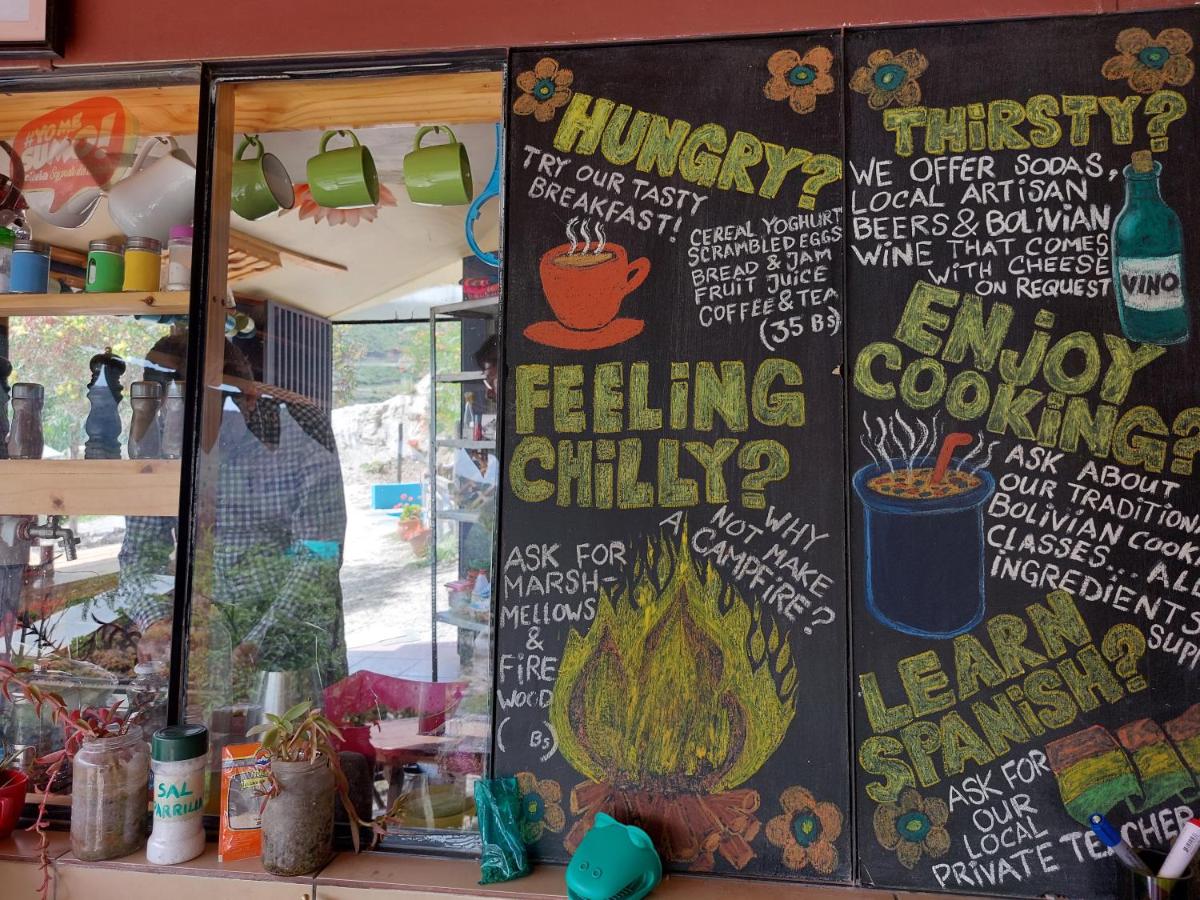 #YO ME
SUMO!
SAL
PARRILLA
HUNGRY?
TRY OUR TASTY
BREAKFAST!
CEREAL YOGHURT
SCRAMBLED EGGS
BREAD & JAM
FRUIT JUICE
COFFEE & TEA
(35 Bs)
FEELING
CHILLY?
WHY
NOT MAKE
A CAMPFIRE?
ASK FOR
MARSH-
MELLOWS
&
FIRE
WOOD
( Bs)
THIRSTY?
WE OFFER SODAS,
LOCAL ARTISAN
BEERS & BOLIVIAN
WINE THAT COMES
WITH CHEESE
ON REQUEST
VINO
ENJOY
COOKING?
ASK ABOUT
OUR TRADITION
BOLIVIAN COOK
CLASSES... ALL
INGREDIENTS
SUPP
LEARN
SPANISH?
ASK FOR
OUR
LOCAL
PRIVATE TEACHER